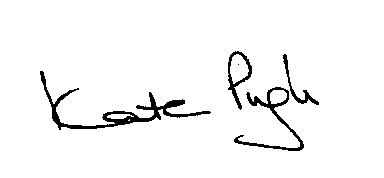 Kate Pugh